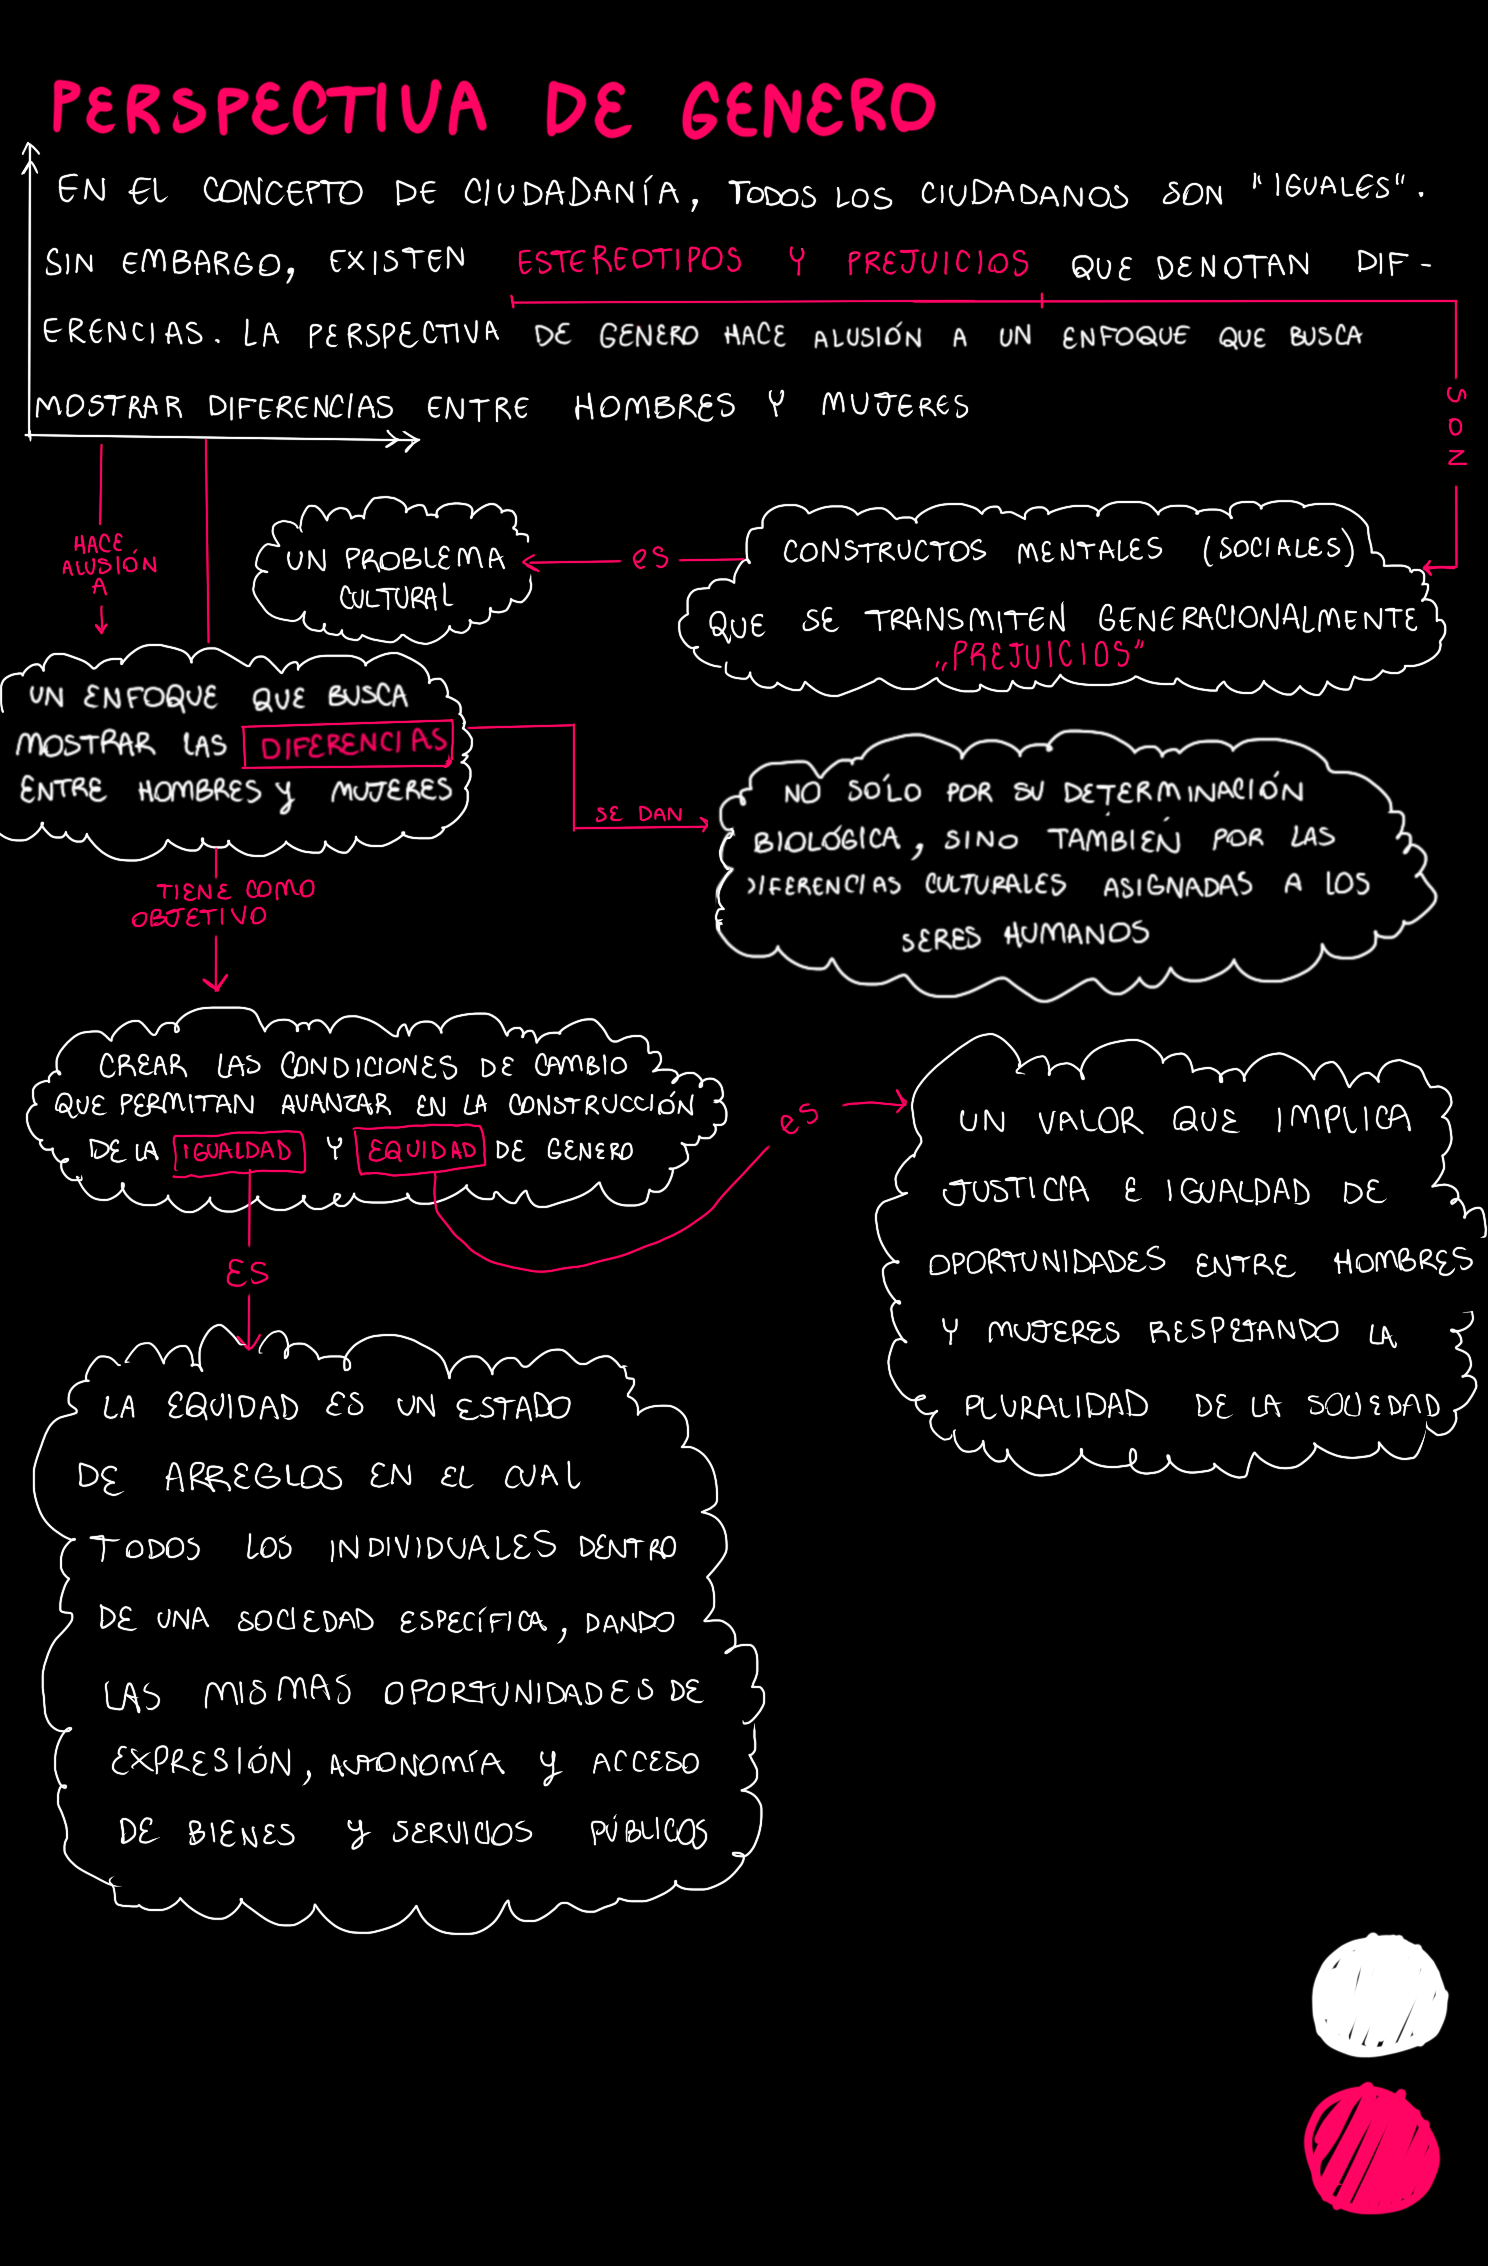 PERSPECTIVA DE GENERO
EN EL CONCEPTO DE CIUDADANÍA, TODOS LOS CIUDADANOS SON "IGUALES".
SIN EMBARGO, EXISTEN ESTEREOTIPOS Y PREJUICIOS QUE DENOTAN DIF-
ERENCIAS. LA PERSPECTIVA DE GENERO HACE ALUSIÓN A UN ENFOQUE QUE BUSCA
MOSTRAR DIFERENCIAS ENTRE HOMBRES Y MUJERES
SON
CONSTRUCTOS MENTALES (SOCIALES)
QUE SE TRANSMITEN GENERACIONALMENTE
"PREJUICIOS"
es
UN PROBLEMA
CULTURAL
HACE
ALUSIÓN
A
UN ENFOQUE QUE BUSCA
MOSTRAR LAS DIFERENCIAS
ENTRE HOMBRES Y MUJERES
SE DAN
NO SÓLO POR SU DETERMINACIÓN
BIOLÓGICA, SINO TAMBIÉN POR LAS
DIFERENCIAS CULTURALES ASIGNADAS A LOS
SERES HUMANOS
TIENE COMO
OBJETIVO
CREAR LAS CONDICIONES DE CAMBIO
QUE PERMITAN AVANZAR EN LA CONSTRUCCIÓN
DE LA IGUALDAD Y EQUIDAD DE GENERO
es
UN VALOR QUE IMPLICA
JUSTICIA E IGUALDAD DE
OPORTUNIDADES ENTRE HOMBRES
Y MUJERES RESPETANDO LA
PLURALIDAD DE LA SOCIEDAD
ES
LA EQUIDAD ES UN ESTADO
DE ARREGLOS EN EL CUAL
TODOS LOS INDIVIDUALES DENTRO
DE UNA SOCIEDAD ESPECÍFICA, DANDO
LAS MISMAS OPORTUNIDADES DE
EXPRESIÓN, AUTONOMÍA Y ACCESO
DE BIENES Y SERVICIOS PÚBLICOS